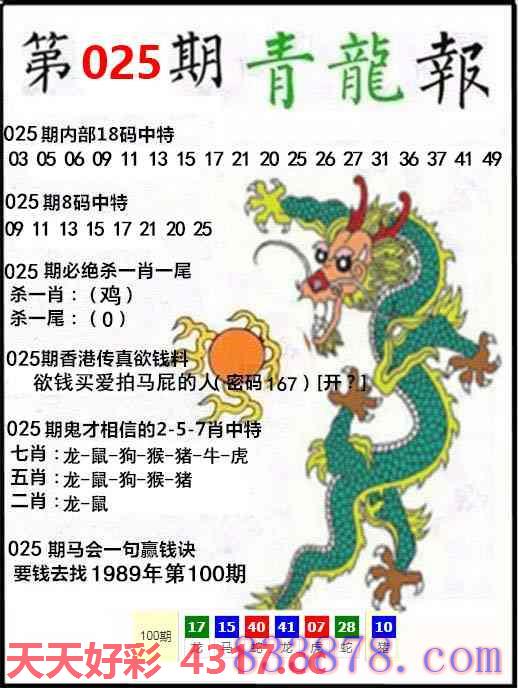 第025期青龍報
025期内部18码中特
03 05 06 09 11 13 15 17 21 20 25 26 27 31 36 37 41 49
025期8码中特
09 11 13 15 17 21 20 25
025 期必绝杀一肖一尾
杀一肖：（鸡）
杀一尾：（0）
025期香港传真欲钱料
欲钱买爱拍马屁的人（密码167）[开？]
025期鬼才相信的2-5-7肖中特
七肖：龙-鼠-狗-猴-猪-牛-虎
五肖：龙-鼠-狗-猴-猪
二肖：龙-鼠
025 期马会一句赢钱诀
要钱去找1989年第100期
100期 17 15 40 41 07 28 10
龙 马 蛇 龙 虎 蛇 猪
天天好彩 4317.cc